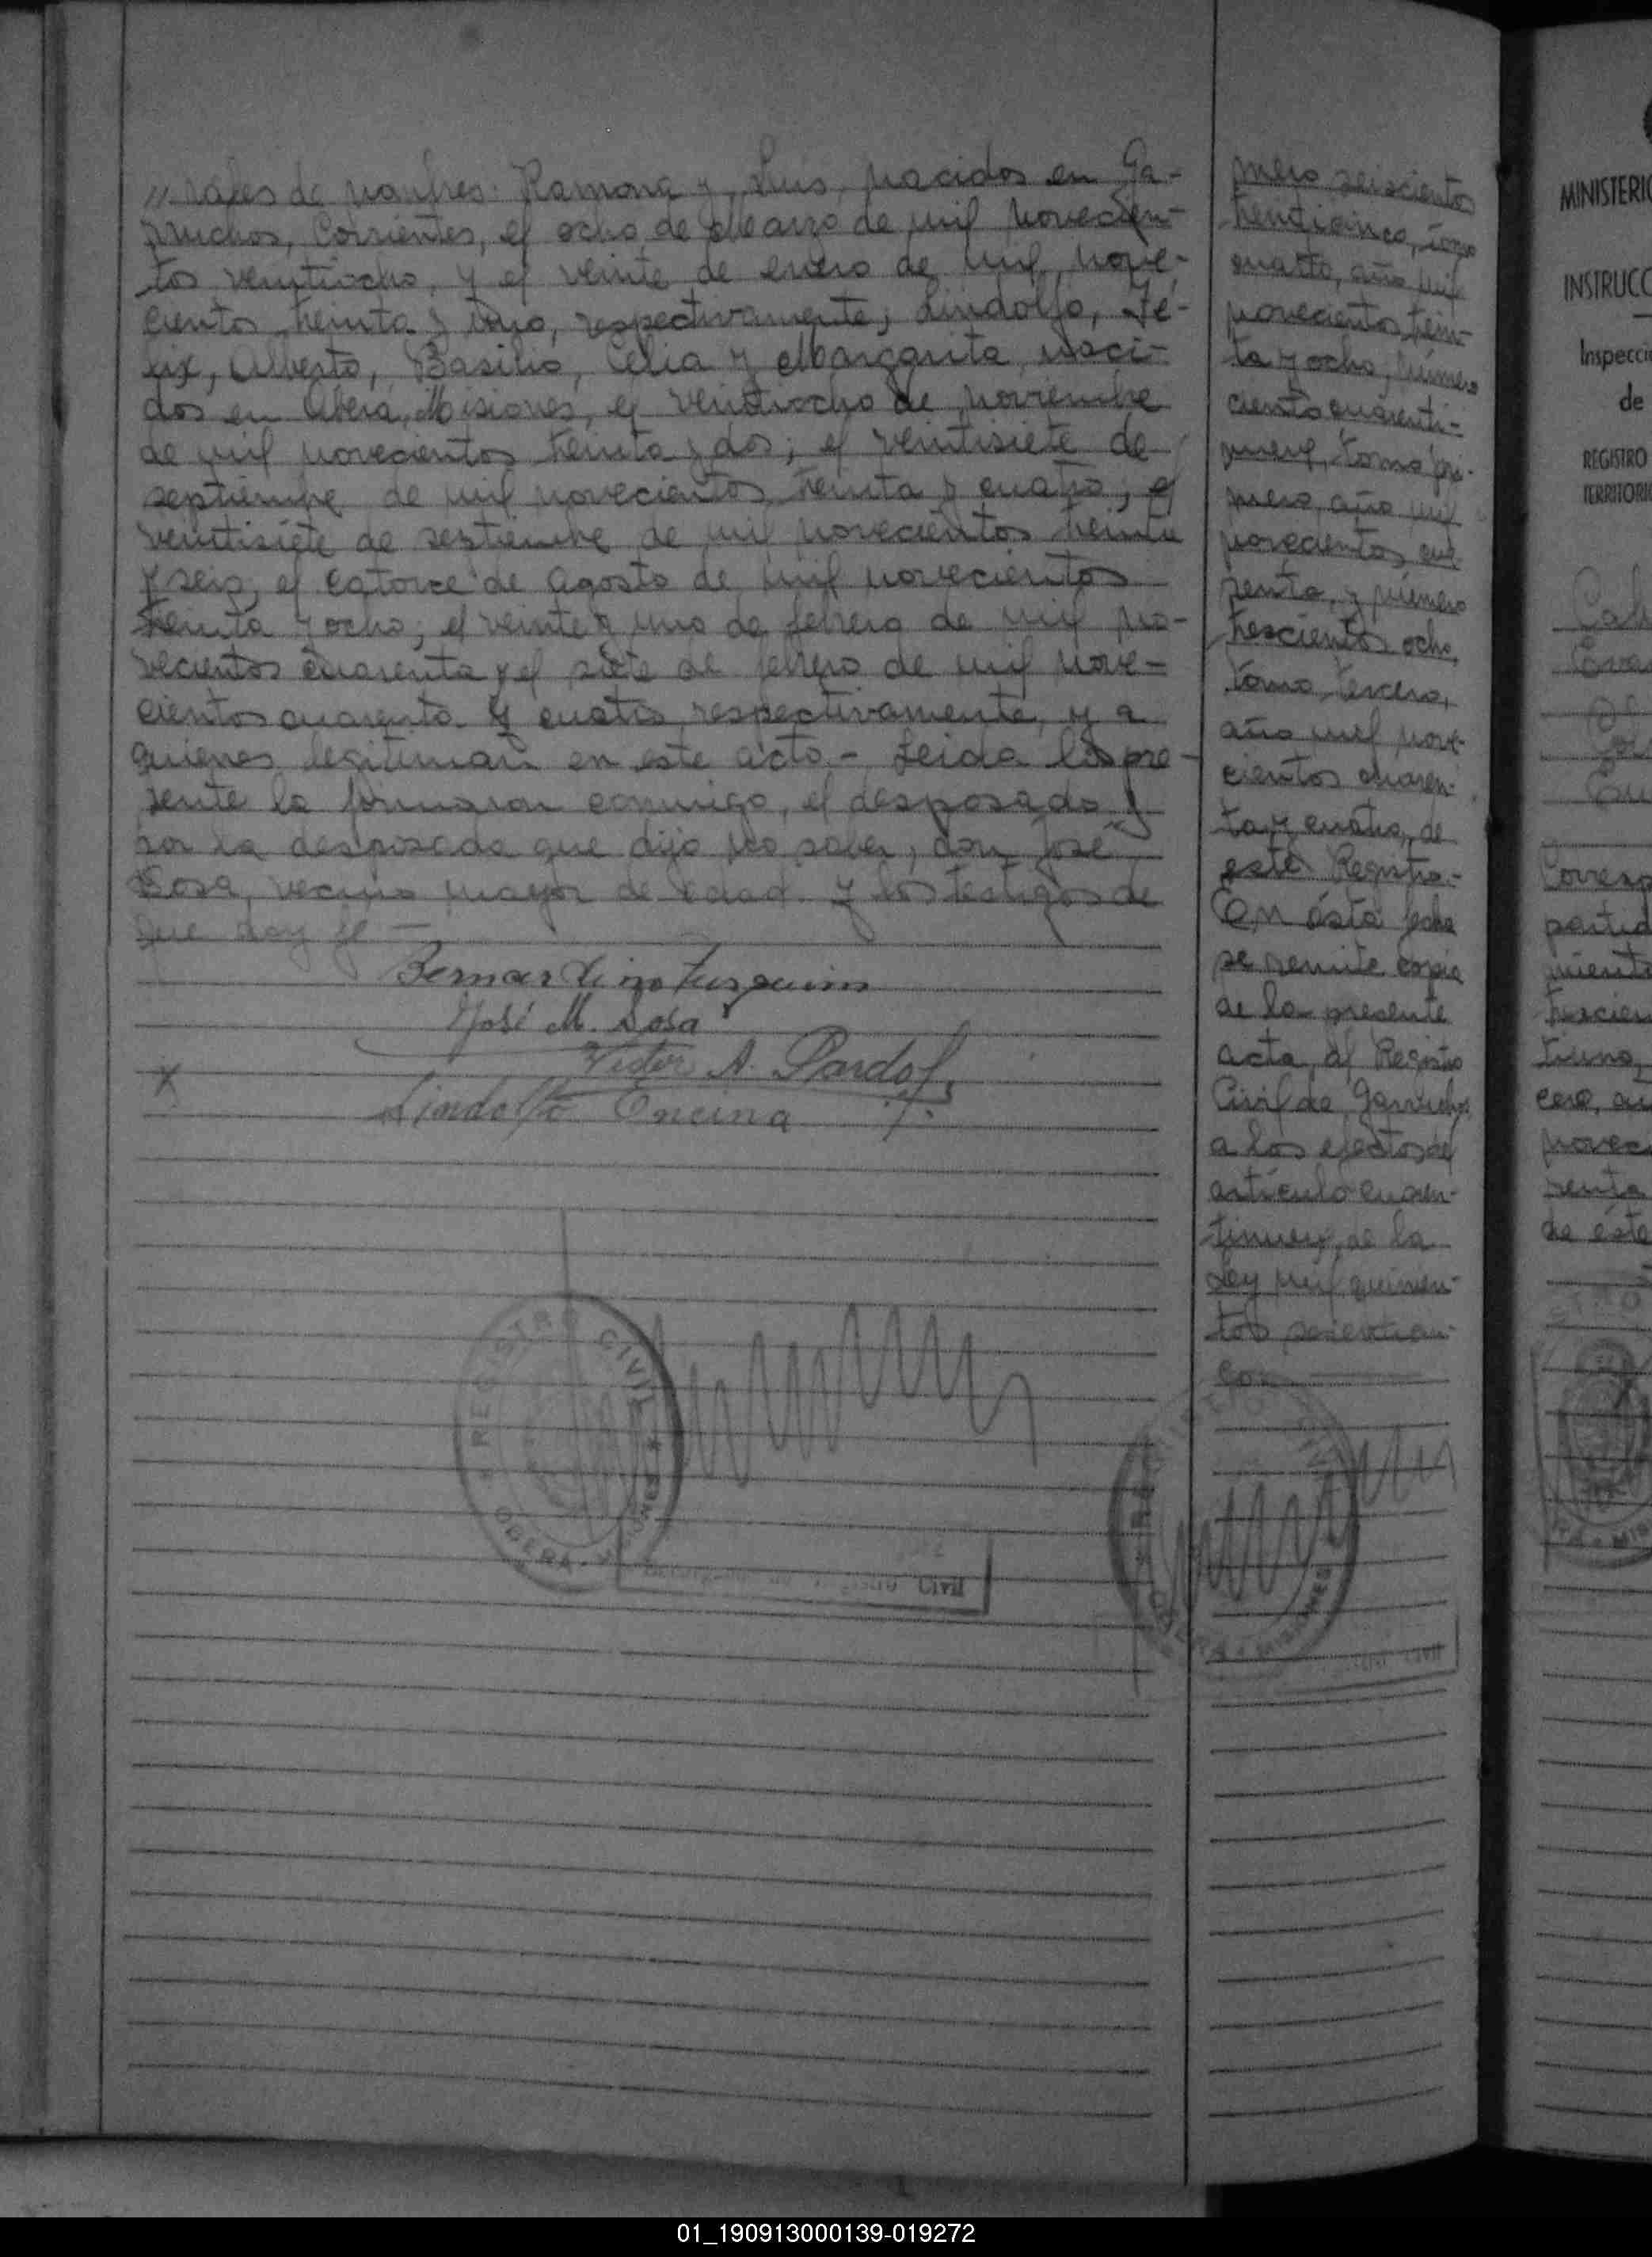 "rales de nombres: Ramona y Luis, nacidos en Ga-
rruchos, Corrientes, el ocho de Marzo de mil novecien-
tos veintiocho, y el veinte de enero de mil nove-
cientos treinta y uno, respectivamente; Lindolfo, Fé-
lix, Alberto, Basilio, Celia y Margarita, naci-
dos en Oberá, Misiones, el veintiocho de noviembre
de mil novecientos treinta y dos; el veintisiete de
septiembre de mil novecientos treinta y cuatro; el
veintisiete de septiembre de mil novecientos treinta
y seis; el catorce de Agosto de mil novecientos
treinta y ocho; el veinte y uno de febrero de mil no-
vecientos cuarenta y el siete de febrero de mil nove-
cientos cuarenta y cuatro respectivamente, y a
quienes legitiman en este acto.- Leida la pre-
sente la firmaron conmigo, el desposado y
por la desposada que dijo no saber, don José
Sosa, vecino mayor de edad y los testigos de
que doy fe -
Bernardino
José M. Sosa
Victor A. Pardo
X
Lindolfo Encina
REGISTRO CIVIL
OBERA - MISIONES
Civil
mero seiscientos
treinticinco, tomo
cuarto, año mil
novecientos trein-
ta y ocho, número
ciento cuarenti-
nueve, tomo pri-
mero, año mil
novecientos cua-
renta, y número
trescientos ocho,
tomo tercero,
año mil nove-
cientos cuaren-
ta y cuatro, de
este Registro.-
En ésta fecha
se remite copia
de la presente
acta, al Registro
Civil de Garruchos
a los efectos del
artículo cuaren-
tinueve, de la
Ley mil quinien-
tos
co.
OBERA - MISIONES
Civil
MINISTERIO
INSTRUCC
Inspecci
de
REGISTRO
TERRITORI
Corresp
partid
miento
trescien
tiuno,
cero, au
novec
renta
de éste